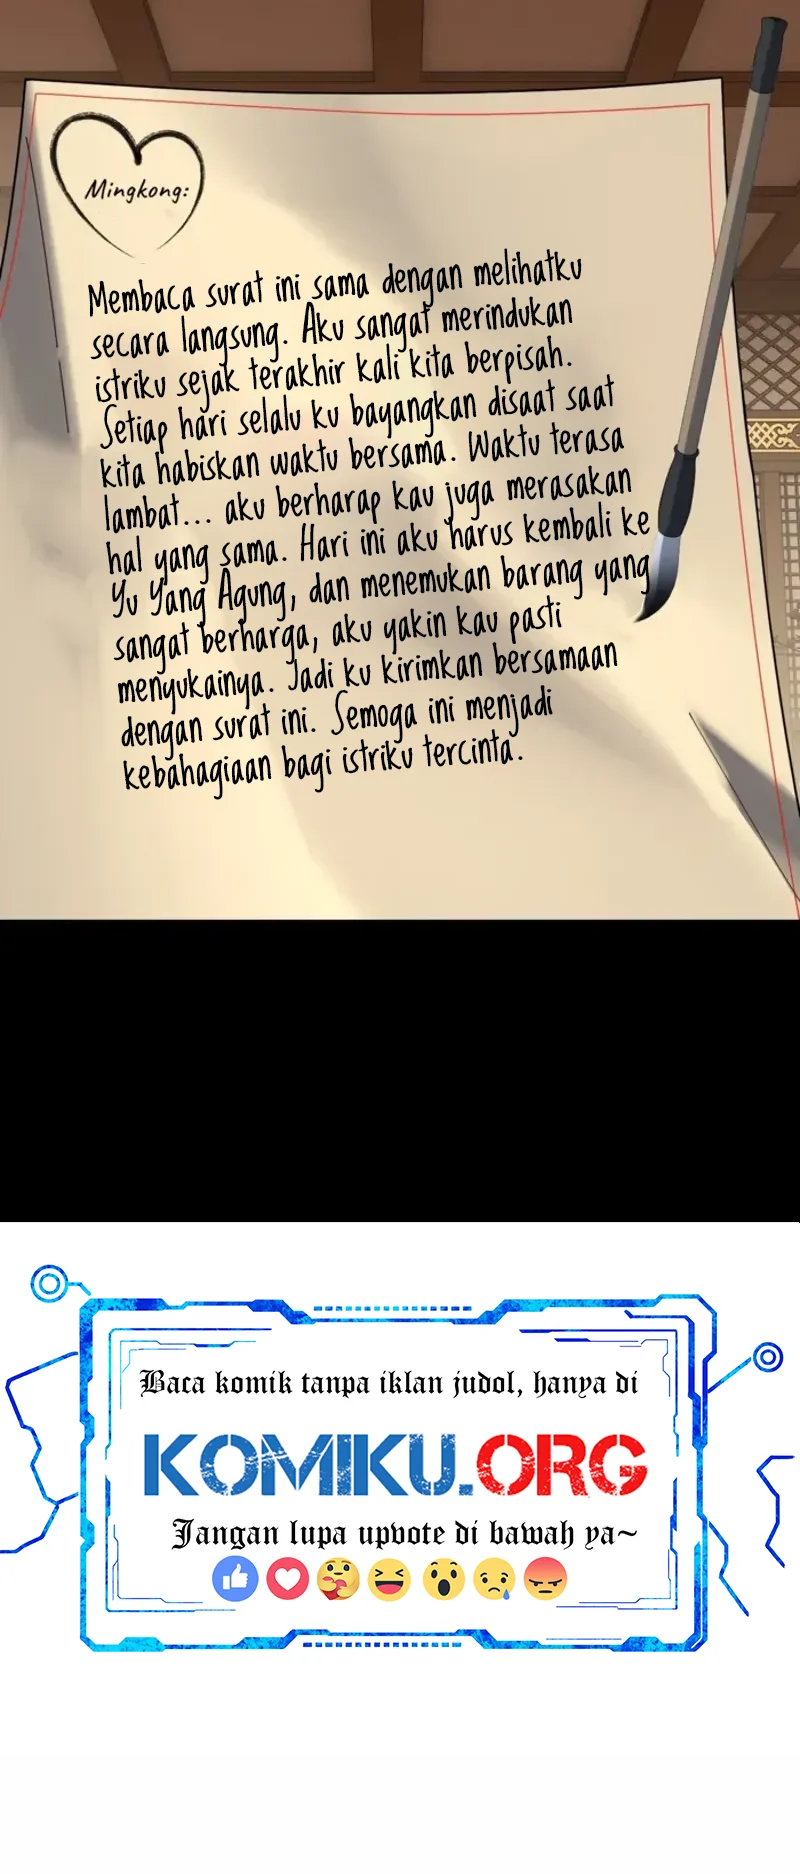 Mingkong:
Membaca surat ini sama dengan melihatku
secara langsung. Aku sangat merindukan
istriku sejak terakhir kali kita berpisah.
Setiap hari selalu ku bayangkan disaat saat
kita habiskan waktu bersama. Waktu terasa
lambat... aku berharap kau juga merasakan
hal yang sama. Hari ini aku harus kembali ke
Yu Yang Agung, dan menemukan barang yang
sangat berharga, aku yakin kau pasti
menyukainya. Jadi ku kirimkan bersamaan
dengan surat ini. Semoga ini menjadi
kebahagiaan bagi istriku tercinta.
Baca komik tanpa iklan judol, hanya di
KOMIKU.ORG
Jangan lupa upvote di bawah ya~